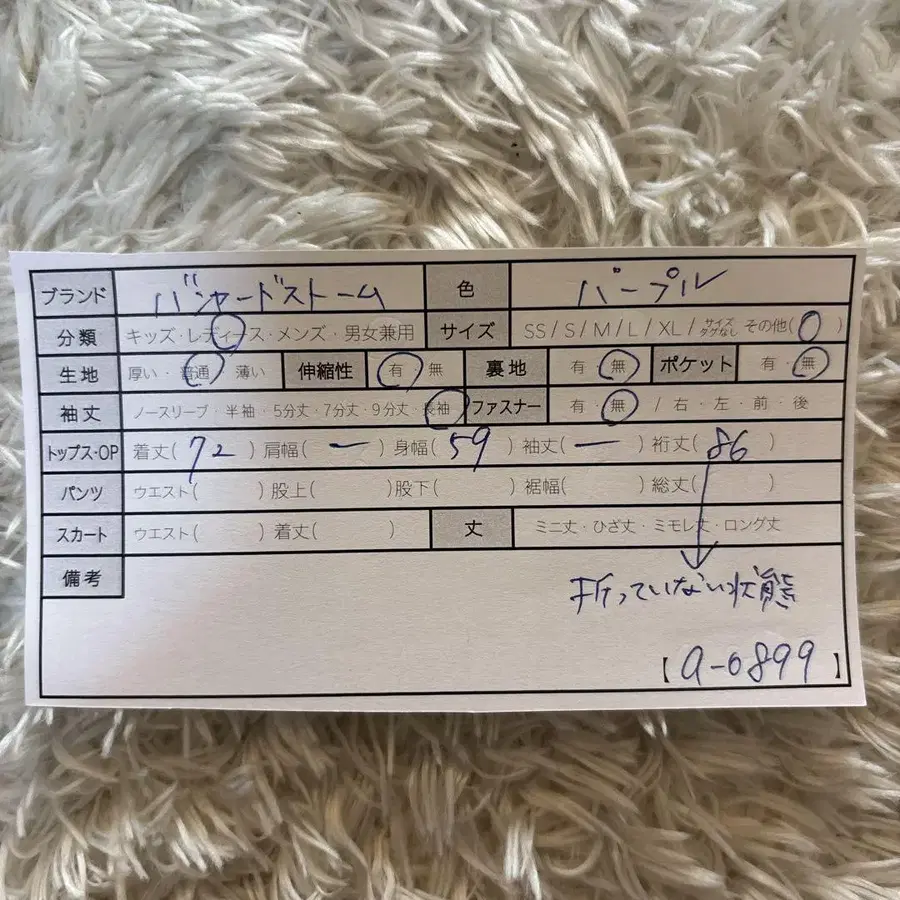 ブランド バンヤードストーム 色 パープル
分類 キッズ・レディース・メンズ・男女兼用 サイズ SS / S / M / L / XL / サイズタグなし その他( 0 )
生地 厚い・普通・薄い 伸縮性 有・無 裏地 有・無 ポケット 有・無
袖丈 ノースリーブ・半袖・5分丈・7分丈・9分丈・長袖 ファスナー 有・無 / 右・左・前・後
トップス・OP 着丈( 72 ) 肩幅( ー ) 身幅( 59 ) 袖丈( ー ) 裄丈( 86 )
パンツ ウエスト( ) 股上( ) 股下( ) 裾幅( ) 総丈( )
スカート ウエスト( ) 着丈( ) 丈 ミニ丈・ひざ丈・ミモレ丈・ロング丈
備考 折っていない状態
【a-0899】